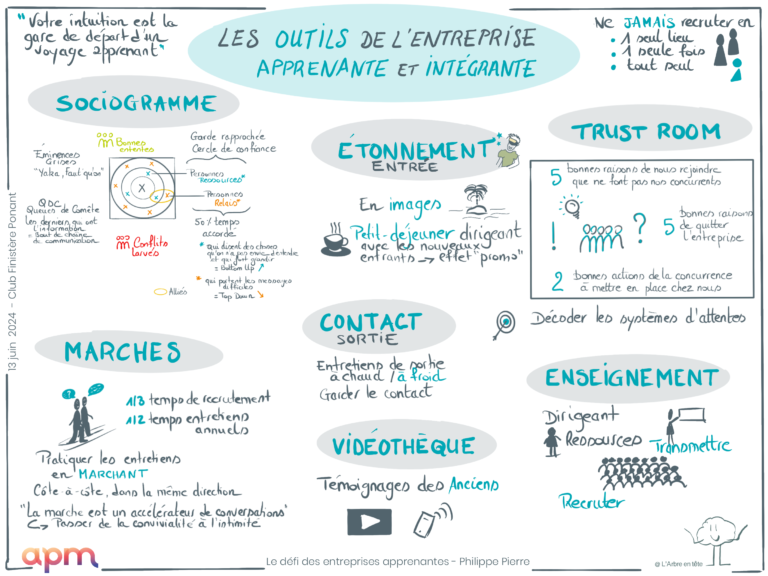 "Votre intuition est la
gare de départ d'un
voyage apprenant"
LES OUTILS DE L'ENTREPRISE
APPRENANTE ET INTÉGRANTE
Ne JAMAIS recruter en
• 1 seul lieu
• 1 seule fois
• tout seul
SOCIOGRAMME
Bonnes
ententes
Éminences
Grises
"Yaka, faut qu'on"
QDC
Queues de Comète
Les derniers qui ont
l'information
= bout de chaîne
de communication
X
Conflits
larvés
Garde rapprochée
Cercle de confiance
Personnes
RESSOURCES*
Personnes
Relais*
50% temps
accordé
* qui disent des choses
et qui font grandir
= Bottom Up
* qui portent les messages
difficiles
= Top Down
Alliés
ÉTONNEMENT
ENTRÉE
En images
Petit-déjeuner dirigeant
avec les nouveaux
entrants → effet "promo"
TRUST ROOM
5 bonnes raisons de nous rejoindre
que ne font pas nos concurrents
! ?
5 bonnes raisons
de quitter
l'entreprise
2 bonnes actions de la concurrence
à mettre en place chez nous
Décoder les systèmes d'attentes
MARCHES
? ...
1/3 temps de recrutement
1/2 temps entretiens
annuels
Pratiquer les entretiens
en MARCHANT
Côte à côte, dans la même direction
"La marche est un accélérateur de conversations"
↳ Passer de la convivialité à l'intimité
CONTACT
SORTIE
Entretiens de sortie
à chaud / à froid
Garder le contact
VIDÉOTHÈQUE
Témoignages des Anciens
ENSEIGNEMENT
Dirigeant
Ressources
Transmettre
Recruter
13 juin 2024 - Club Finistère Ponant
apm
Le défi des entreprises apprenantes - Philippe Pierre
@ L'Arbre en tête